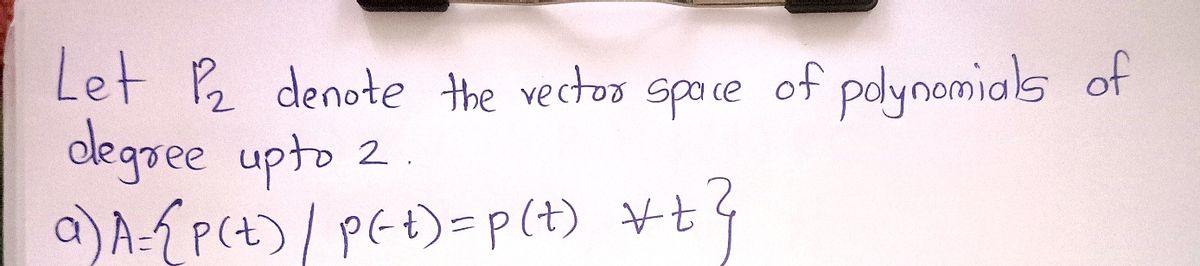 Let P₂ denote the vector space of polynomials of
degree upto 2.
a) A={p(t) / p(-t)=p(t) ∀t}